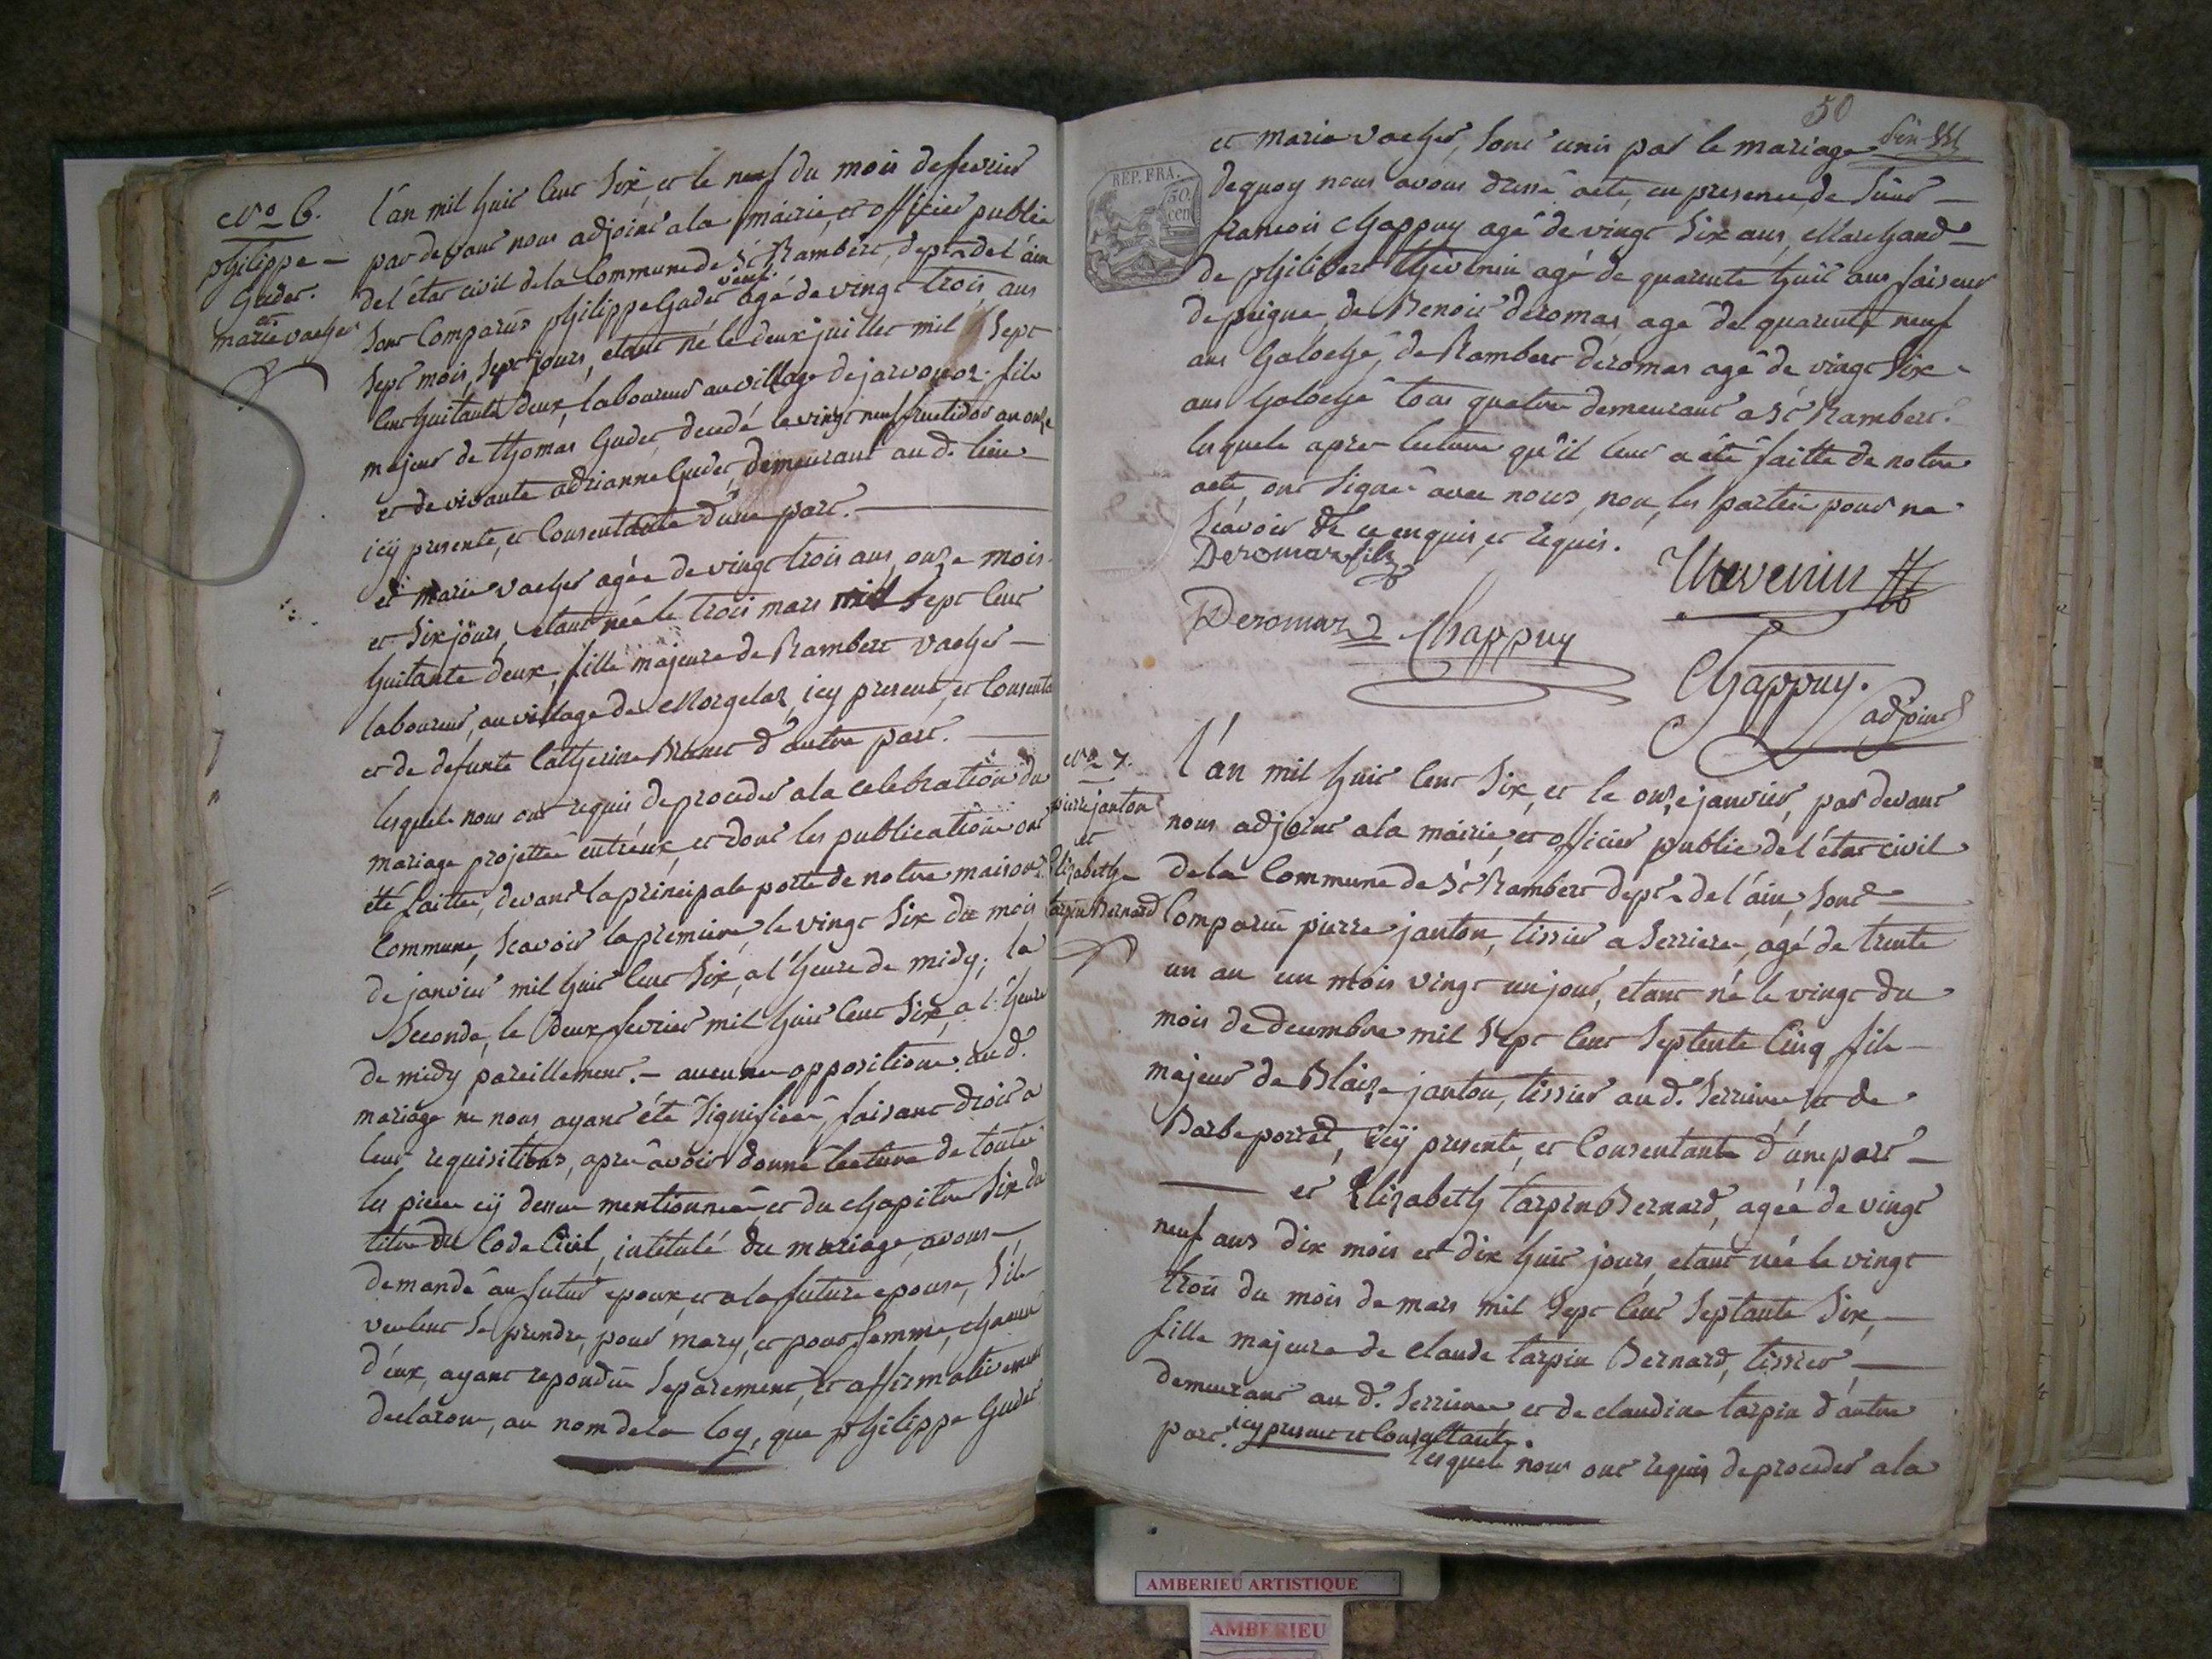 N.o 6.
philippe
Guder.
et
marie vacher
l'an mil huit cent Six, et le neuf du mois de fevrier
par devant nous adjoint a la mairie, et officier public
de l'état civil de la Commune de St Rambert, dept de l'ain
Sont Comparus philippe Guder agé de vingt trois ans
Sept mois, Sept jours, etant né le deux juillet mil Sept
Cent huitante deux, laboureur au village de javornoz. fils
majeur de thomas Guder, decedé le vingt neuf fructidor an onze
et de vivante adrianne Guder, demeurant au d. lieu
icy presente, et Consentante d'une part.
et marie vacher agée de vingt trois ans onze mois
et Six jours, etant née le trois mars mil Sept Cent
huitante deux, fille majeure de Rambert vacher
laboureur, au village de Morgelaz, icy present, et Consent
et de defunte Catherine d'autre part.
lesquels nous ont requis de proceder a la celebration du
mariage projetté entr'eux, et dont les publications ont
été faittes, devant la principale porte de notre maison
Commune, Scavoir la premiere, le vingt Six du mois
de janvier mil huit Cent Six, a l'heure de midy; la
Seconde, le deux fevrier mil huit Cent Six, a l'heure
de midy pareillement. - aucune opposition au d.
mariage ne nous ayant été Signifiée, faisant droit a
leur requisitions, apres avoir donné lecture de toutes
les pieces cy dessus mentionnées et du chapitre Six du
titre du Code Civil, intitulé du mariage, avons
demandé au futur epoux, et a la future epouse, S'ils
veulent Se prendre, pour mary, et pour femme, chacun
d'eux, ayant repondu Separement, et affirmativement
declarons, au nom de la loy, que philippe Guder
50
REP. FRA.
50
cen
et marie vacher, Sont unis par le mariage
dequoy nous avons dressé acte, en presence de Sieur
francois Chappuy agé de vingt Six ans, Marchand
de philibert thevenin agé de quarente huit ans faiseur
de peigne, de Benoit deromas agé de quarente neuf
ans Galoché, de Rambert deromas agé de vingt Six
ans Galoché tous quatre demeurant a St Rambert.
lesquels apres lecture qu'il leur a été faitte de notre
acte, ont Signé avec nous, non les parties pour ne
Scavoir de ce enquis, et requis.
Deromas fils
Thevenin
Deromas Chappuy
Chappuy.
adjoint
N.o 7.
pierre janton
et
Elizabeth
tarpin Bernard
l'an mil huit Cent Six, et le onze janvier, par devant
nous adjoint a la mairie, et officier public de l'état civil
de la Commune de St Rambert dept de l'ain, Sont
Comparu pierre janton, tissier a Serriere, agé de trente
un an un mois vingt un jour, etant né le vingt du
mois de decembre mil Sept Cent Septente Cinq fils
majeur de Blaize janton, tissier au d. Serriere et de
Barbe porret, icy presente, et Consentante d'une part
et Elizabeth tarpin Bernard, agée de vingt
neuf ans dix mois et dix huit jours, etant née le vingt
trois du mois de mars mil Sept Cent Septante Six,
fille majeure de Claude tarpin Bernard, tissier,
demeurant au d. Serriere, et de claudine tarpin d'autre
part. icy present et Consentante.
lesquels nous ont requis de proceder a la
AMBERIEU ARTISTIQUE
AMBERIEU